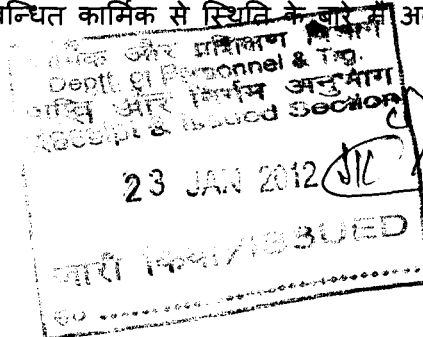 न्धित कार्मिक से स्थिति के बारे में अ
कार्मिक और प्रशिक्षण विभाग
Deptt. of Personnel & Trg.
प्राप्ति और निर्गम अनुभाग
Receipt & Issued Section
23 JAN 2012
जारी किया/ISSUED